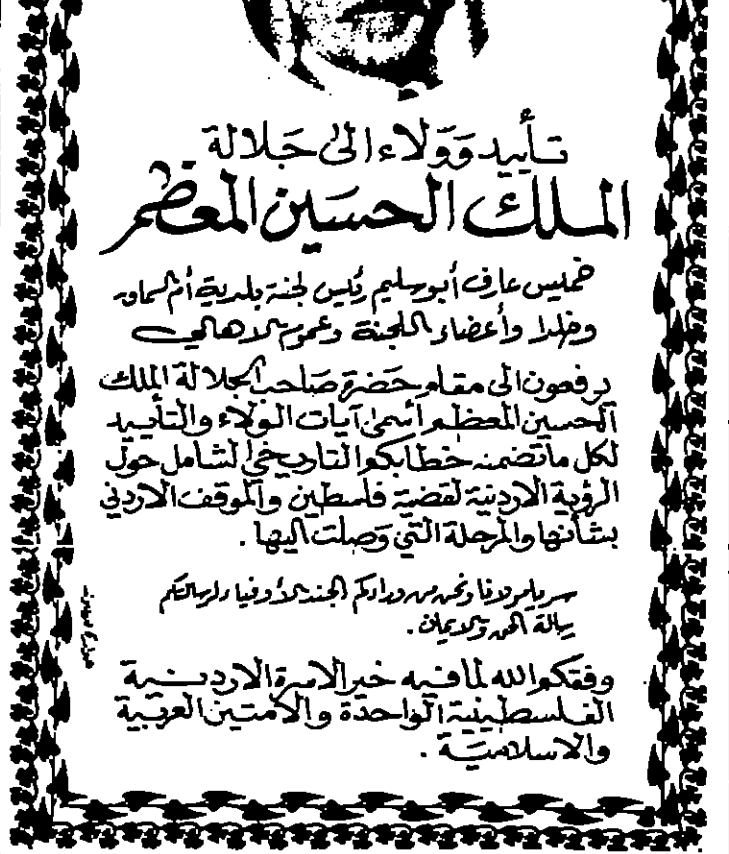 تأييد وَوَلاء الى جَلالة
الملك الحسَين المعظم
خميس عارف أبو سليم رئيس لجنة بلدية أم السماق
وخلدا وأعضاء اللجنة وعموم الاهالي
يرفعون الى مقام حَضرة صَاحب الجلالة الملك
الحسين المعظم أسمىٰ آيات الولاء والتأييد
لكل ما تضمنه خطابكم التاريخي الشامل حول
الرؤية الاردنية لقضية فلسطين والموقف الاردني
بشأنها والمرحلة التي وَصلت اليها .
سر يا مولانا ونحن من ورائكم الجند الأوفياء لرسالتكم
رسالة الحق والايمان .
وفقكم الله لما فيه خير الاسرة الاردنية
الفلسطينية الواحدة والأمتين العربية
والاسلاميَة .